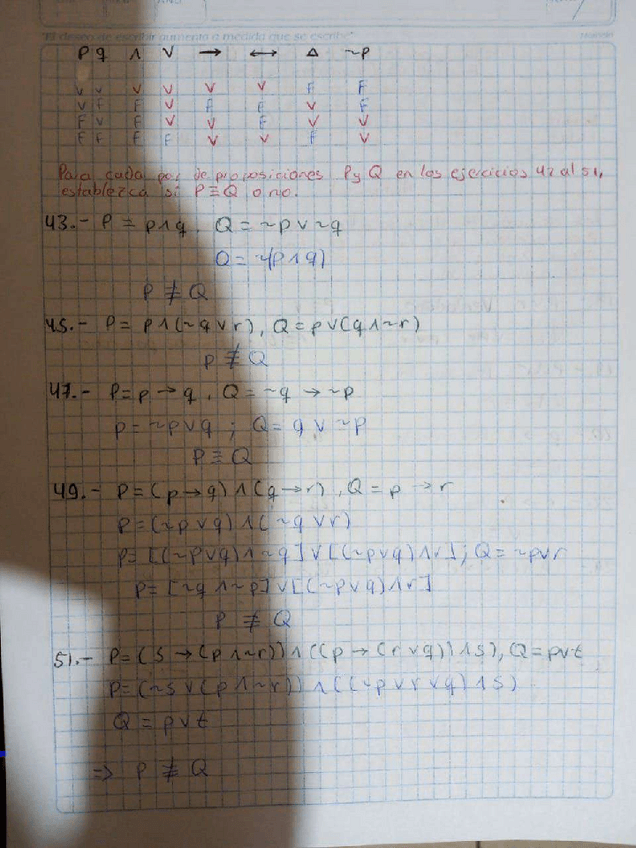 "El deseo de escribir aumenta a medida que se escribe"
P q ∧ ∨ → ↔ Δ ~P
V V V V V V F F
V F F V F F V F
F V F V V F V V
F F F F V V F V
Para cada par de proposiciones P y Q en los ejercicios 42 al 51,
establezca si P ≡ Q o no.
43.- P = p∧q, Q = ~p∨~q
Q = ~(p∧q)
P ≢ Q
45.- P = p∧(~q∨r), Q = p∨(q∧~r)
P ≢ Q
47.- P = p → q, Q = ~q → ~p
p = ~p∨q ; Q = q ∨ ~p
P ≡ Q
49.- P = (p→q)∧(q→r), Q = p → r
P = (~p∨q)∧(~q∨r)
P = [(~p∨q)∧~q]∨[(~p∨q)∧r]; Q = ~p∨r
P = [~q∧~p]∨[(~p∨q)∧r]
P ≢ Q
51.- P = (s → (p∧~r))∧((p→(r∨q))∧s), Q = p∨t
P = (~s∨(p∧~r))∧((~p∨r∨q)∧s)
Q = p∨t
⇒ P ≢ Q